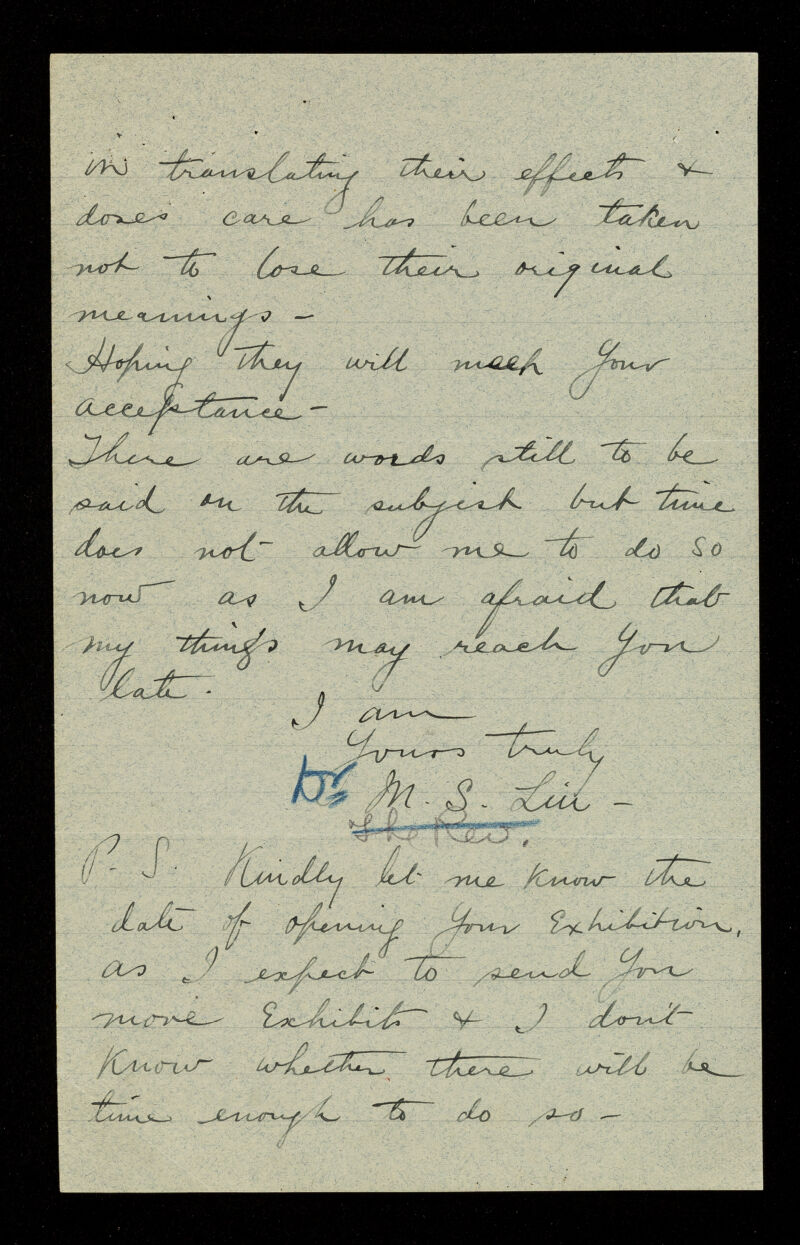 in translating their effects &
doses care has been taken
not to lose their original
meanings -
Hoping they will meet your
acceptance -
There are words still to be
said on the subject but time
does not allow me to do so
now as I am afraid that
my things may reach you
late.
I am
Yours truly
Dr M. S. Liu -
The Rev.
P. S. Kindly let me know the
date of opening your Exhibition,
as I expect to send you
more Exhibits & I don't
know whether there will be
time enough to do so -